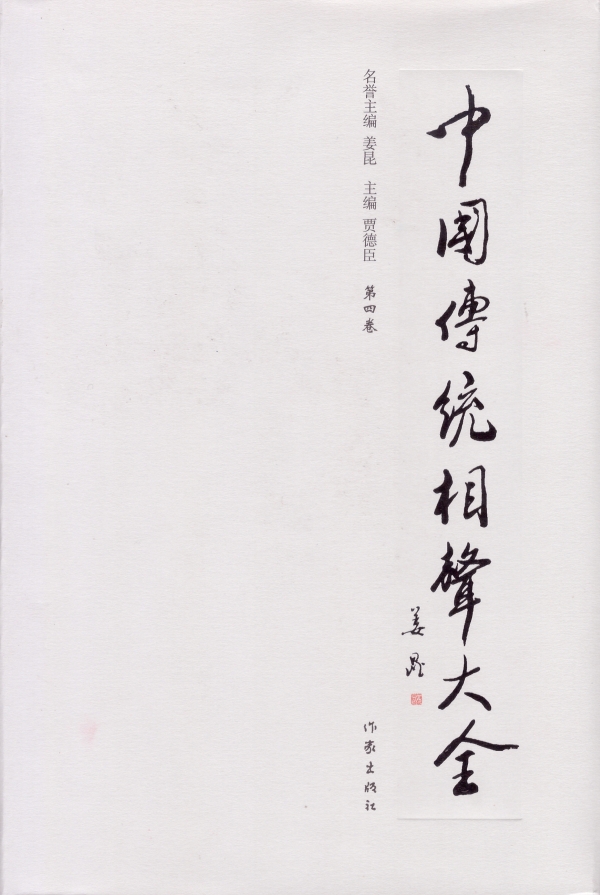 中國傳統相聲大全
姜昆
名誉主编 姜昆 主编 贾德臣 第四卷
作家出版社